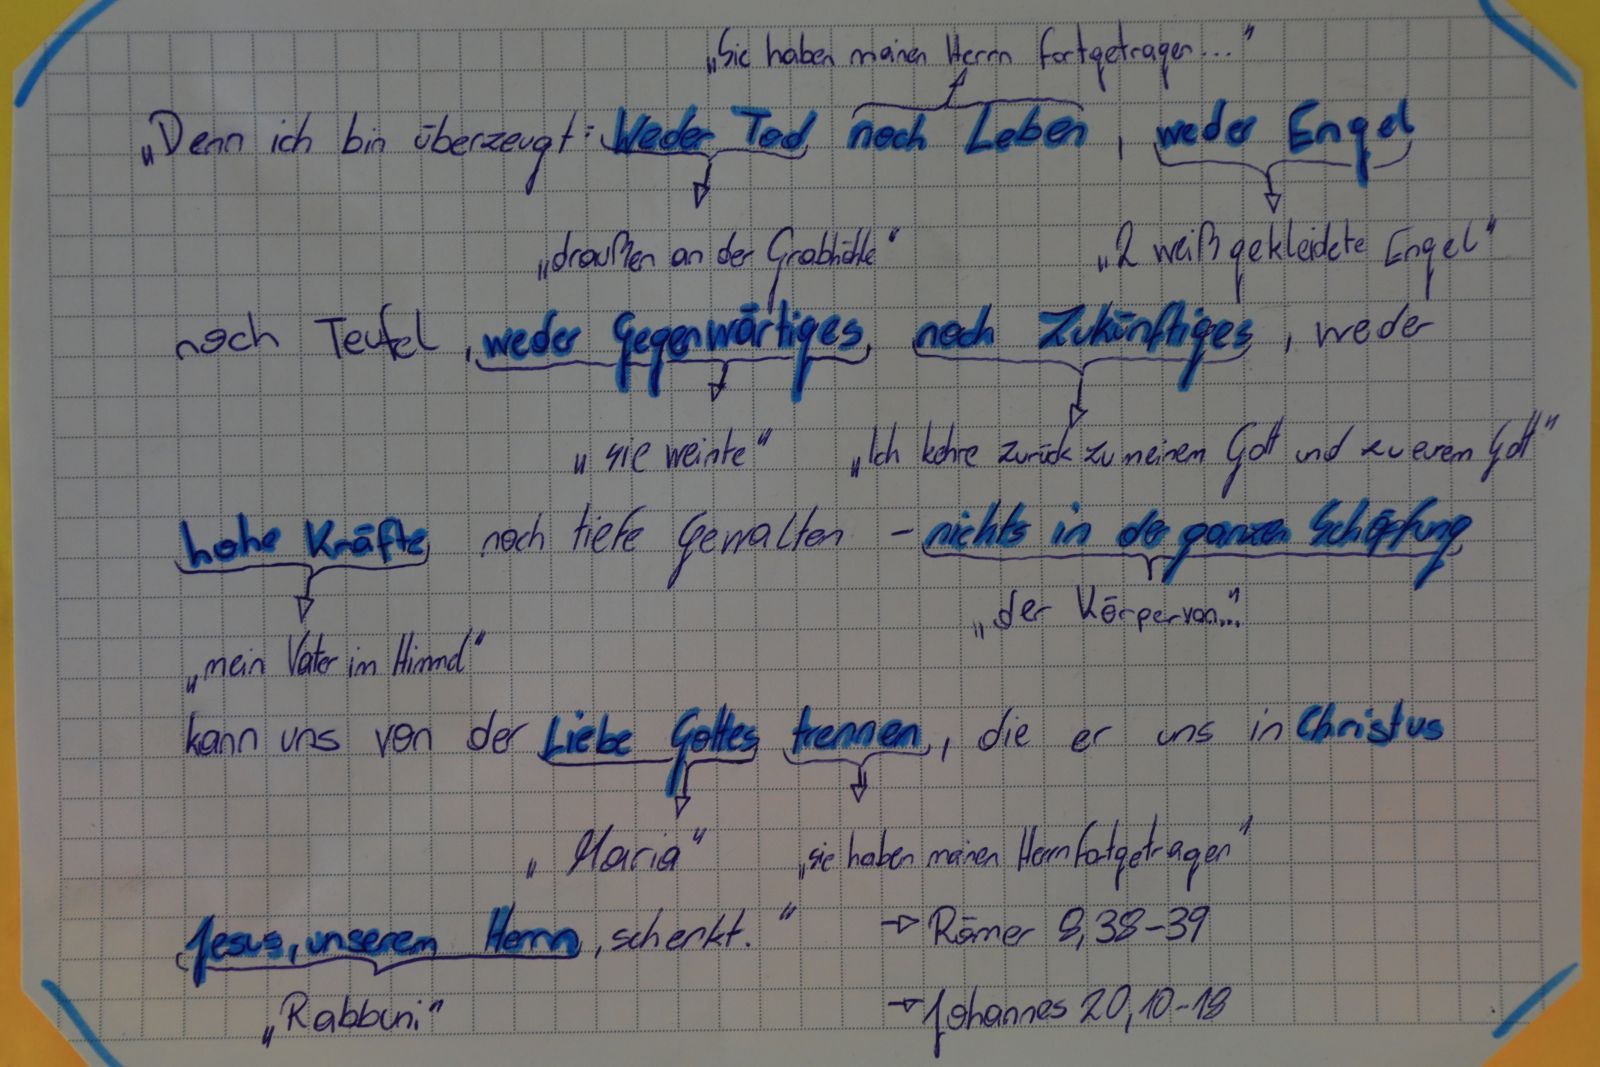 „Sie haben meinen Herrn fortgetragen..."
„Denn ich bin überzeugt: Weder Tod noch Leben, weder Engel
„draußen an der Grabhöhle" „2 weiß gekleidete Engel"
noch Teufel, weder Gegenwärtiges, noch Zukünftiges, weder
„sie weinte" „Ich kehre zurück zu meinem Gott und zu eurem Gott"
hohe Kräfte noch tiefe Gewalten – nichts in der ganzen Schöpfung
„der Körper von..."
„mein Vater im Himmel"
kann uns von der Liebe Gottes trennen, die er uns in Christus
„Maria" „sie haben meinen Herrn fortgetragen"
Jesus, unserem Herrn, schenkt." → Römer 8,38–39
„Rabbuni" → Johannes 20,10–18